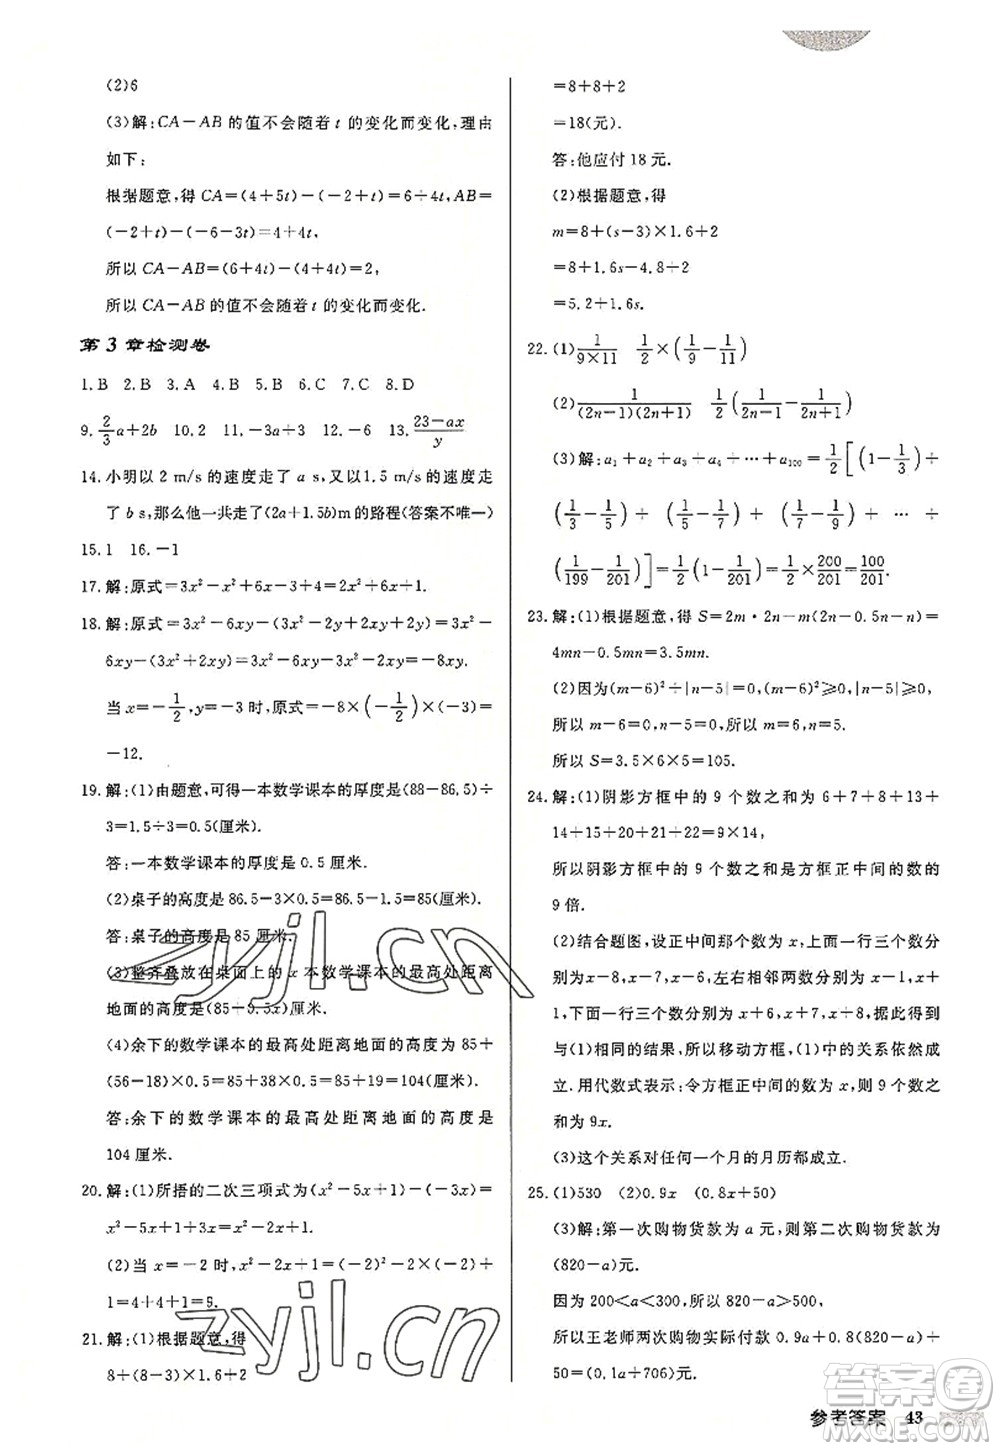 (2)6
(3)解:CA－AB 的值不会随着 t 的变化而变化,理由
如下:
根据题意,得 CA=(4+5t)－(－2+t)=6+4t,AB=
(－2+t)－(－6－3t)=4+4t,
所以 CA－AB=(6+4t)－(4+4t)=2,
所以 CA－AB 的值不会随着 t 的变化而变化.
第 3 章检测卷
1.B 2.B 3.A 4.B 5.B 6.C 7.C 8.D
9.2/3a+2b 10.2 11.－3a÷3 12.－6 13.(23－ax)/y
14.小明以 2 m/s 的速度走了 a s,又以 1.5 m/s 的速度走
了 b s,那么他一共走了(2a+1.5b)m 的路程(答案不唯一)
15.1 16.－1
17.解:原式=3x²－x²+6x－3+4=2x²+6x+1.
18.解:原式=3x²－6xy－(3x²－2y+2xy+2y)=3x²－
6xy－(3x²+2xy)=3x²－6xy－3x²－2xy=－8xy.
当 x=－1/2,y=－3 时,原式=－8×(－1/2)×(－3)=
－12.
19.解:(1)由题意,可得一本数学课本的厚度是(88－86.5)÷
3=1.5÷3=0.5(厘米).
答:一本数学课本的厚度是 0.5 厘米.
(2)桌子的高度是 86.5－3×0.5=86.5－1.5=85(厘米).
答:桌子的高度是 85 厘米.
(3)整齐叠放在桌面上的 x 本数学课本的最高处距离
地面的高度是(85+0.5x)厘米.
(4)余下的数学课本的最高处距离地面的高度是 85+
(56－18)×0.5=85+38×0.5=85+19=104(厘米).
答:余下的数学课本的最高处距离地面的高度是
104 厘米.
20.解:(1)所捂的二次三项式为(x²－5x+1)－(－3x)=
x²－5x+1+3x=x²－2x+1.
(2)当 x=－2 时,x²－2x+1=(－2)²－2×(－2)+
1=4+4+1=9.
21.解:(1)根据题意,得
8+(8－3)×1.6+2
=8+8+2
=18(元).
答:他应付 18 元.
(2)根据题意,得
m=8+(s－3)×1.6+2
=8+1.6s－4.8+2
=5.2+1.6s.
22.(1)1/(9×11) 1/2×(1/9－1/11)
(2)1/((2n－1)(2n+1)) 1/2×(1/(2n－1)－1/(2n+1))
(3)解:a₁+a₂+a₃+a₄+…+a₁₀₀=1/2[(1－1/3)+
(1/3－1/5)+(1/5－1/7)+(1/7－1/9)+…+
(1/199－1/201)]=1/2(1－1/201)=1/2×200/201=100/201.
23.解:(1)根据题意,得 S=2m·2n－m(2n－0.5n－n)=
4mn－0.5mn=3.5mn.
(2)因为(m－6)²+|n－5|=0,(m－6)²≥0,|n－5|≥0,
所以 m－6=0,n－5=0,所以 m=6,n=5.
所以 S=3.5×6×5=105.
24.解:(1)阴影方框中的 9 个数之和为 6+7+8+13+
14+15+20+21+22=9×14,
所以阴影方框中的 9 个数之和是方框正中间的数的
9 倍.
(2)结合题图,设正中间那个数为 x,上面一行三个数分
别为 x－8,x－7,x－6,左右相邻两数分别为 x－1,x+
1,下面一行三个数分别为 x+6,x+7,x+8,据此可得
与(1)相同的结果,所以移动方框,(1)中的关系依然成
立.用代数式表示:令方框正中间的数为 x,则 9 个数之
和为 9x.
(3)这个关系对任何一个月的月历都成立.
25.(1)530 (2)0.9x (0.8x+50)
(3)解:第一次购物货款为 a 元,则第二次购物货款为
(820－a)元.
因为 200<a<300,所以 820－a>500,
所以王老师两次购物实际付款 0.9a+0.8(820－a)+
50=(0.1a+706)元.
参考答案 43
zyjl.cn
zyjl.cn
答案圈
MXQE.COM